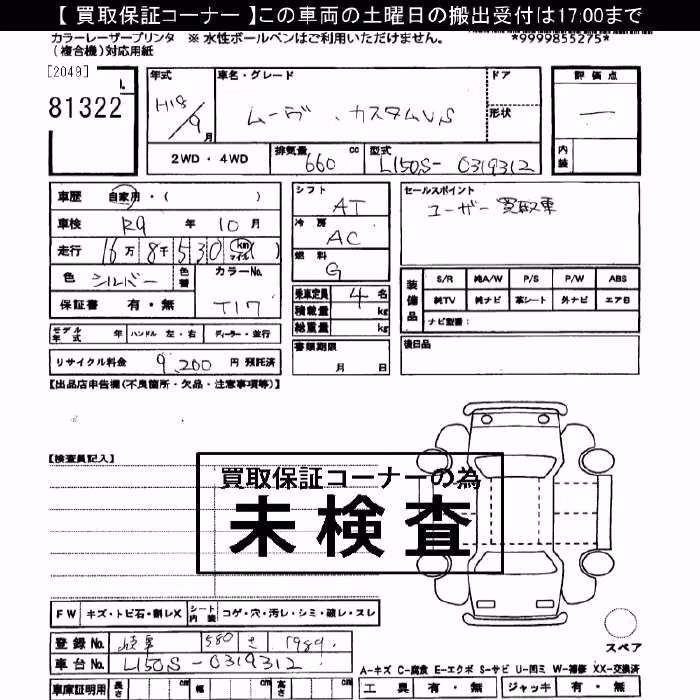 【 買取保証コーナー 】この車両の土曜日の搬出受付は17:00まで
カラーレーザープリンタ ※ 水性ボールペンはご利用いただけません。 *9999855275*
(複合機)対応用紙
[2049]
81322
年式 H18/9月
車名・グレード ムーヴ カスタムVS
ドア 形状
評価点 一
内装
2WD・4WD
排気量 660 cc
型式 L150S-0319312
車歴 自家用・( )
車検 R9 年 10 月
走行 16万8千530 km マイル ( )
色 シルバー 色替
カラーNo. T17
保証書 有・無
シフト AT
冷房 AC
燃料 G
乗車定員 4 名
積載量 kg
総重量 kg
セールスポイント
ユーザー買取車
装備品 S/R 純A/W P/S P/W ABS
純TV 純ナビ 革シート 外ナビ エアB
ナビ型番:
モデル年式 年 ハンドル 左・右 ディーラー・並行
リサイクル料金 9,200 円 預託済
書類期限 月 日
後日品
【出品店申告欄(不良箇所・欠品・注意事項等)】
【検査員記入】
買取保証コーナーの為
未検査
FW キズ・トビ石・割レX シート内装 コゲ・穴・汚レ・シミ・破レ・スレ
スペア
登録No. 580 さ 1989
車台No. L150S-0319312
A-キズ C-腐食 E-エクボ S-サビ U-凹ミ W-補修 XX-交換済
車庫証明用 長さ cm 幅 cm 高さ cm
工具 有・無 ジャッキ 有・無